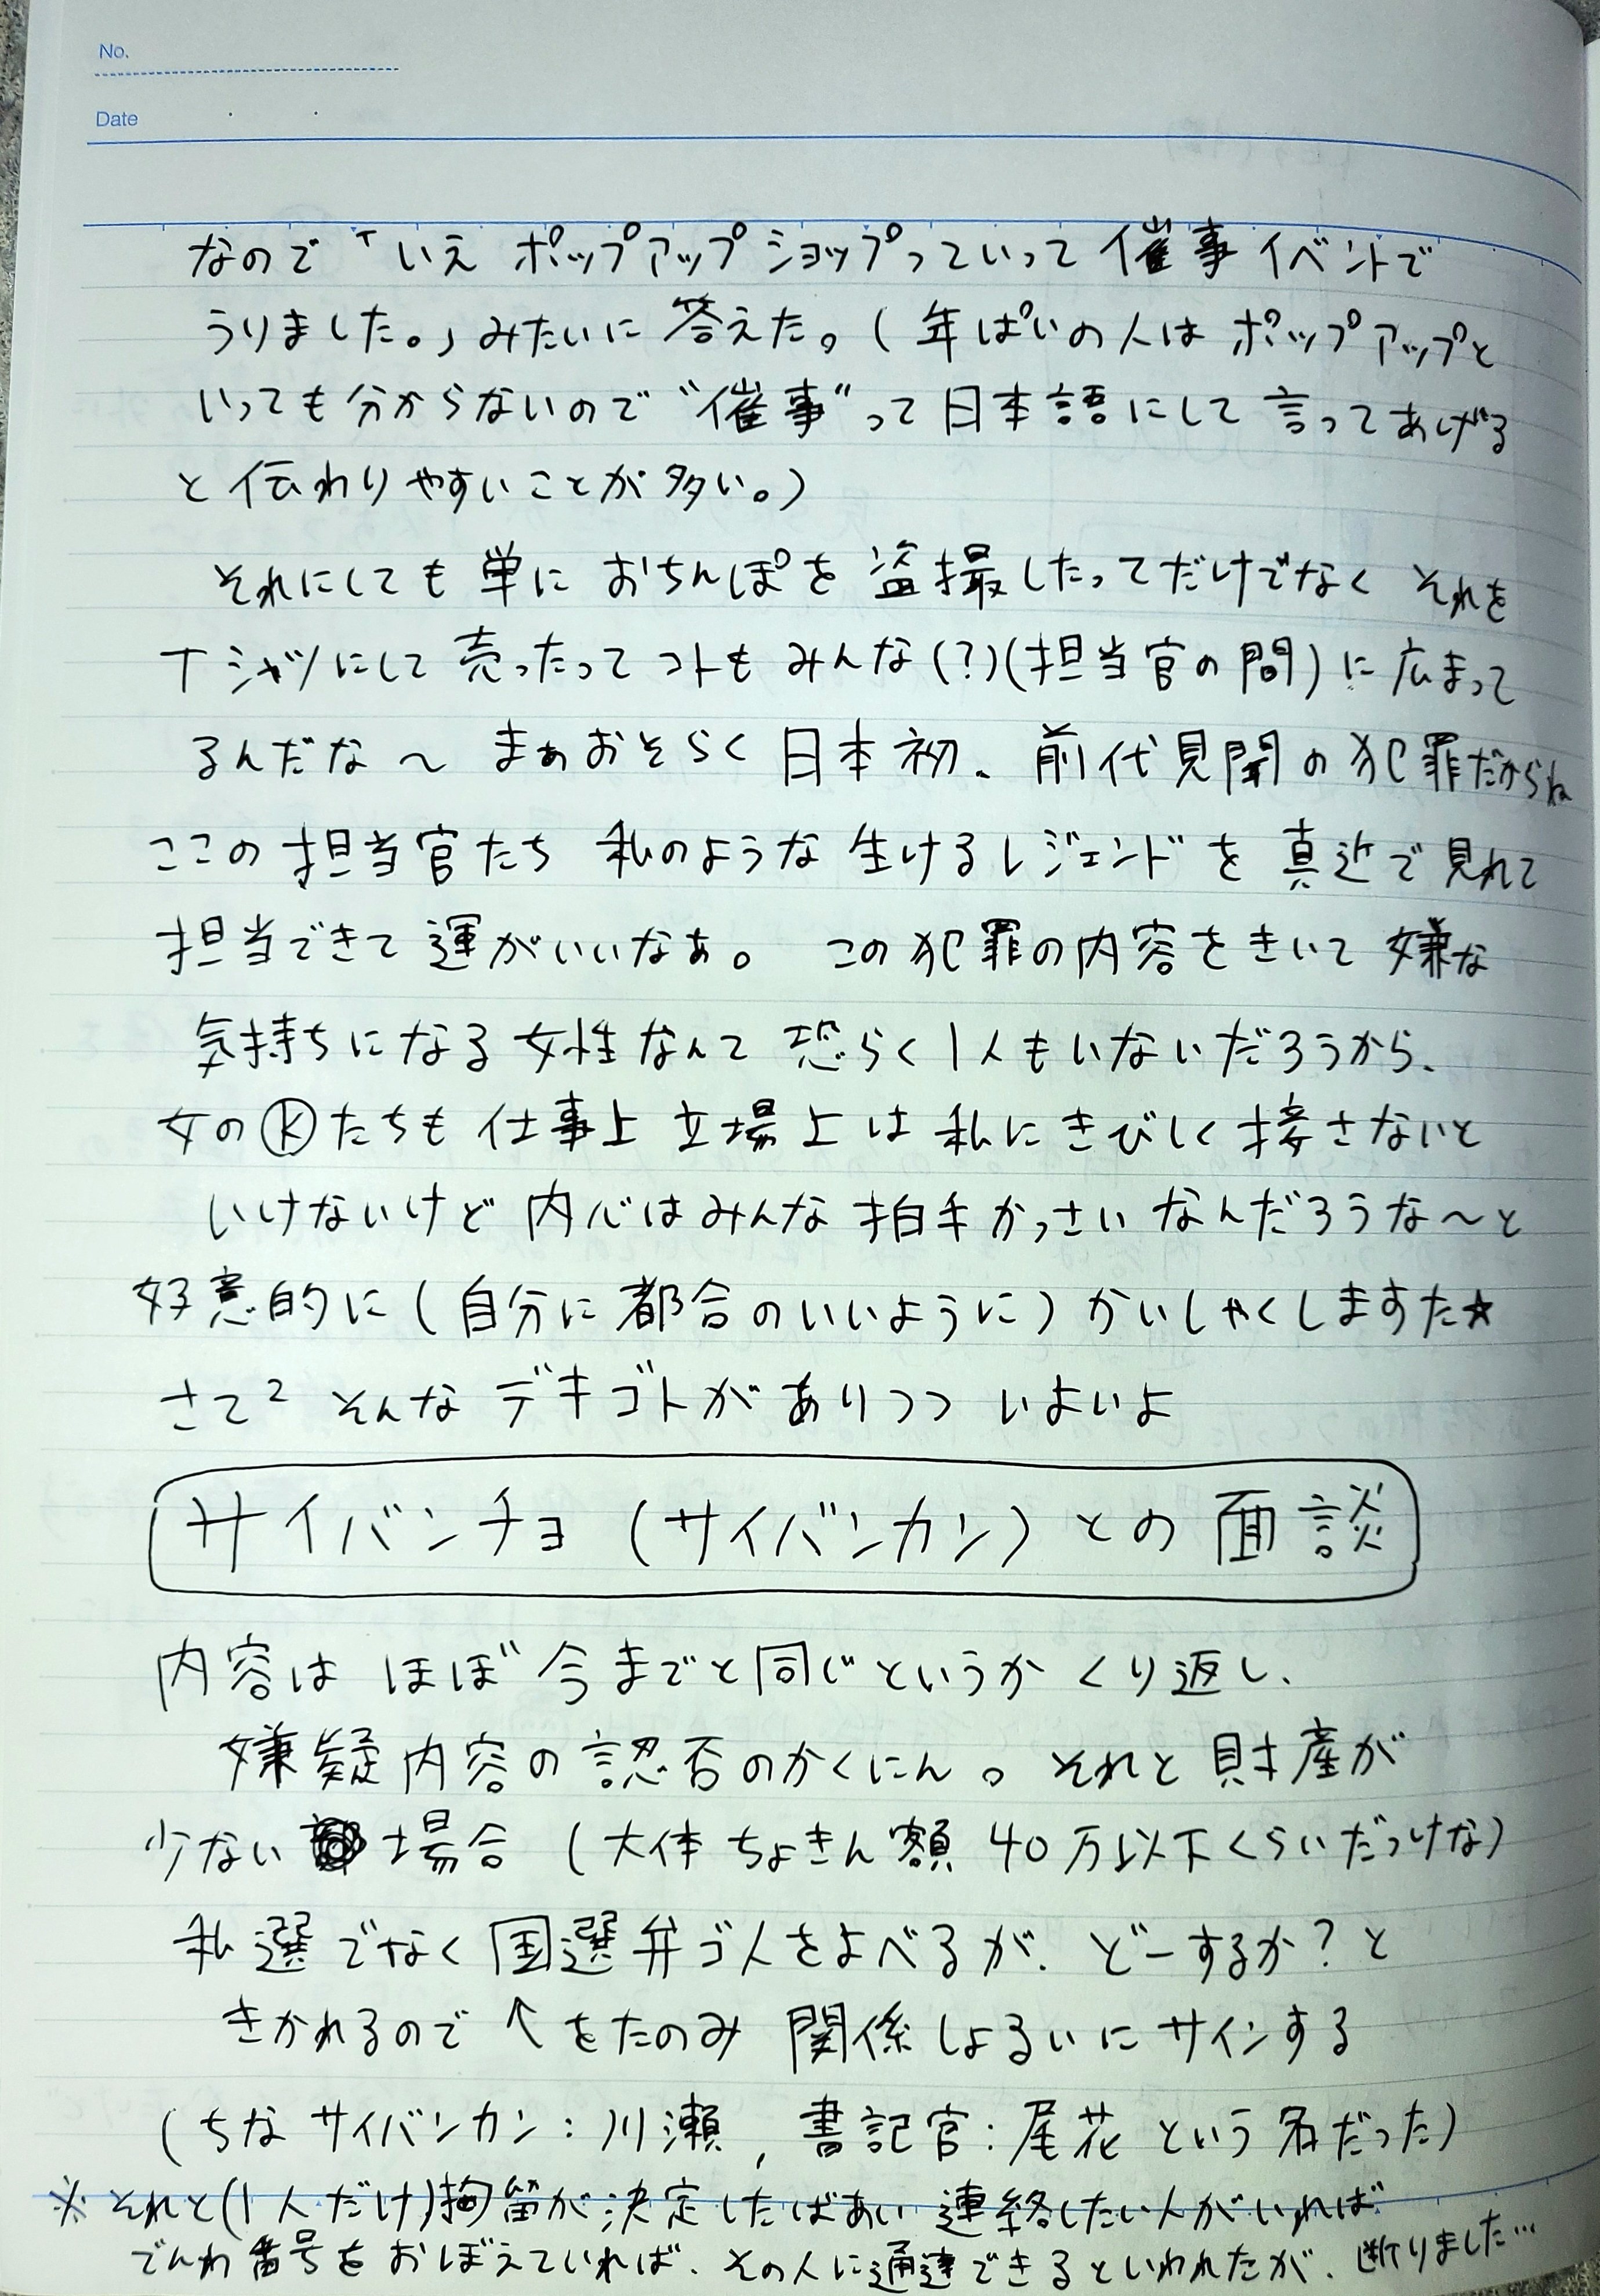 No.
Date
なので「いえ ポップアップショップっていって 催事イベントで
うりました。」みたいに 答えた。(年ぱいの人は ポップアップと
いっても分からないので "催事"って日本語にして言ってあげる
と伝わりやすいことが多い。)
それにしても単に おちんぽを盗撮したってだけでなく それを
Tシャツにして売ったってコトもみんな(?)(担当官の間)に広まって
るんだな〜 まぁおそらく日本初、前代見聞の犯罪だからね
ここの担当官たち 私のような生けるレジェンドを真近で見れて
担当できて運がいいなぁ。 この犯罪の内容をきいて嫌な
気持ちになる女性なんて恐らく1人もいないだろうから、
女のⓀたちも仕事上立場上は私にきびしく接さないと
いけないけど内心はみんな拍手かっさいなんだろうな〜と
好意的に(自分に都合のいいように)かいしゃくしますた☆
さて² そんなデキゴトがありつつ いよいよ
サイバンチョ(サイバンカン)との面談
内容は ほぼ今までと同じというかくり返し、
嫌疑内容の認否のかくにん。それと財産が
少ない場合(大体ちょきん額40万以下くらいだっけな)
私選でなく国選弁ゴ人をよべるが、どーするか?と
きかれるので↑をたのみ 関係しょるいにサインする
(ちな サイバンカン:川瀬, 書記官:尾花 という名だった)
※それと(1人だけ)拘留が決定したばあい連絡したい人がいれば
でんわ番号をおぼえていれば、その人に通達できるといわれたが、断りました…